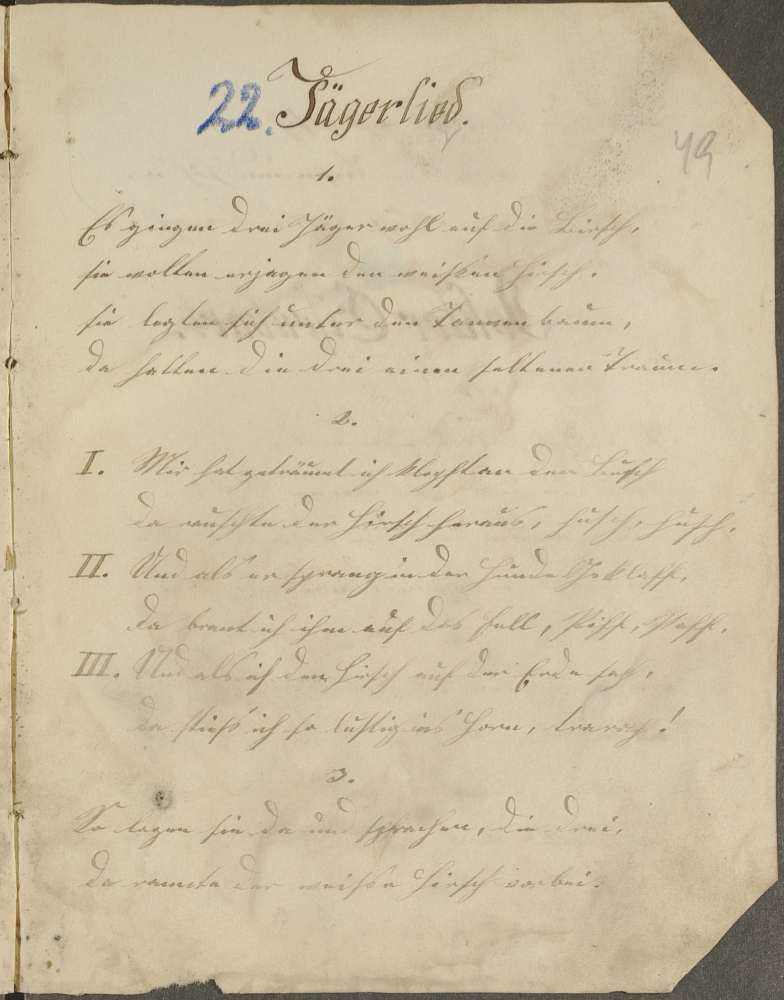 22. Jägerlied.
49
1.
Es gingen drei Jäger wohl auf die Birsch,
sie wollten erjagen den weißen Hirsch.
sie legten sich unter den Tannenbaum,
da hatten die drei einen seltenen Traum.
2.
I. Mir hat geträumt ich klopft an den Busch
da rauschte der Hirsch heraus, husch, husch.
II. Und als er sprang in der Hunde Geklaff,
da brant ich ihm auf das Fell, Piff, Paff.
III. Und als ich den Hirsch auf der Erde sah,
da stieß ich so lustig ins Horn, trara!
3.
So lagen sie da und sprachen, die drei,
da rannte der weiße Hirsch vorbei.